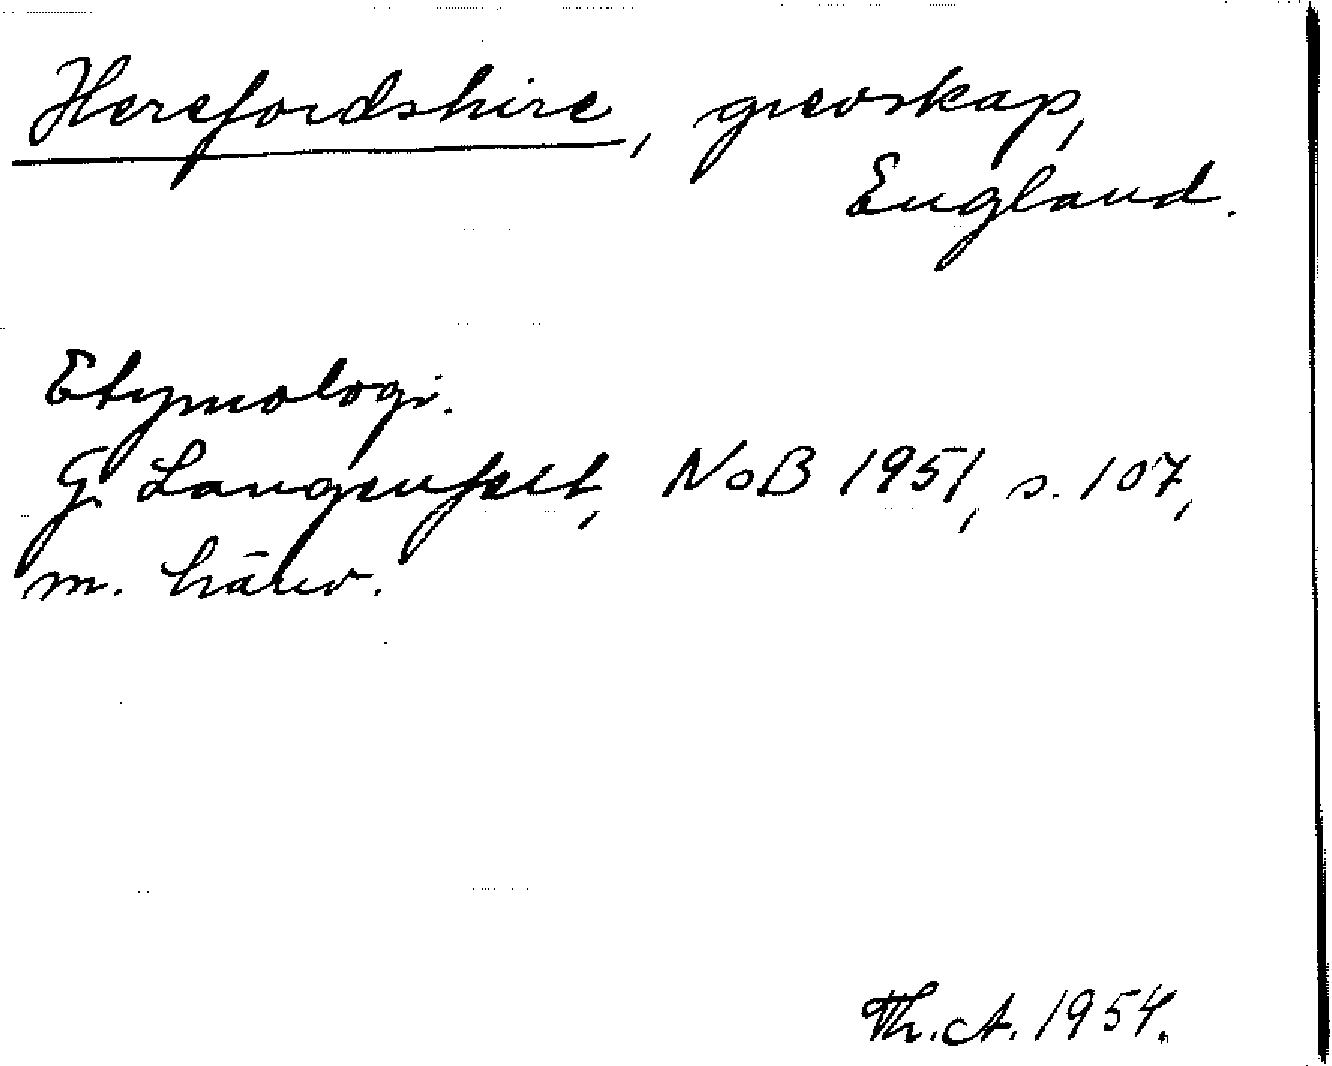 Herefordshire, grevskap,
England.
Etymologi.
G. Langenfelt, NoB 1951, s. 107,
m. hänv.
Th. A. 1954.